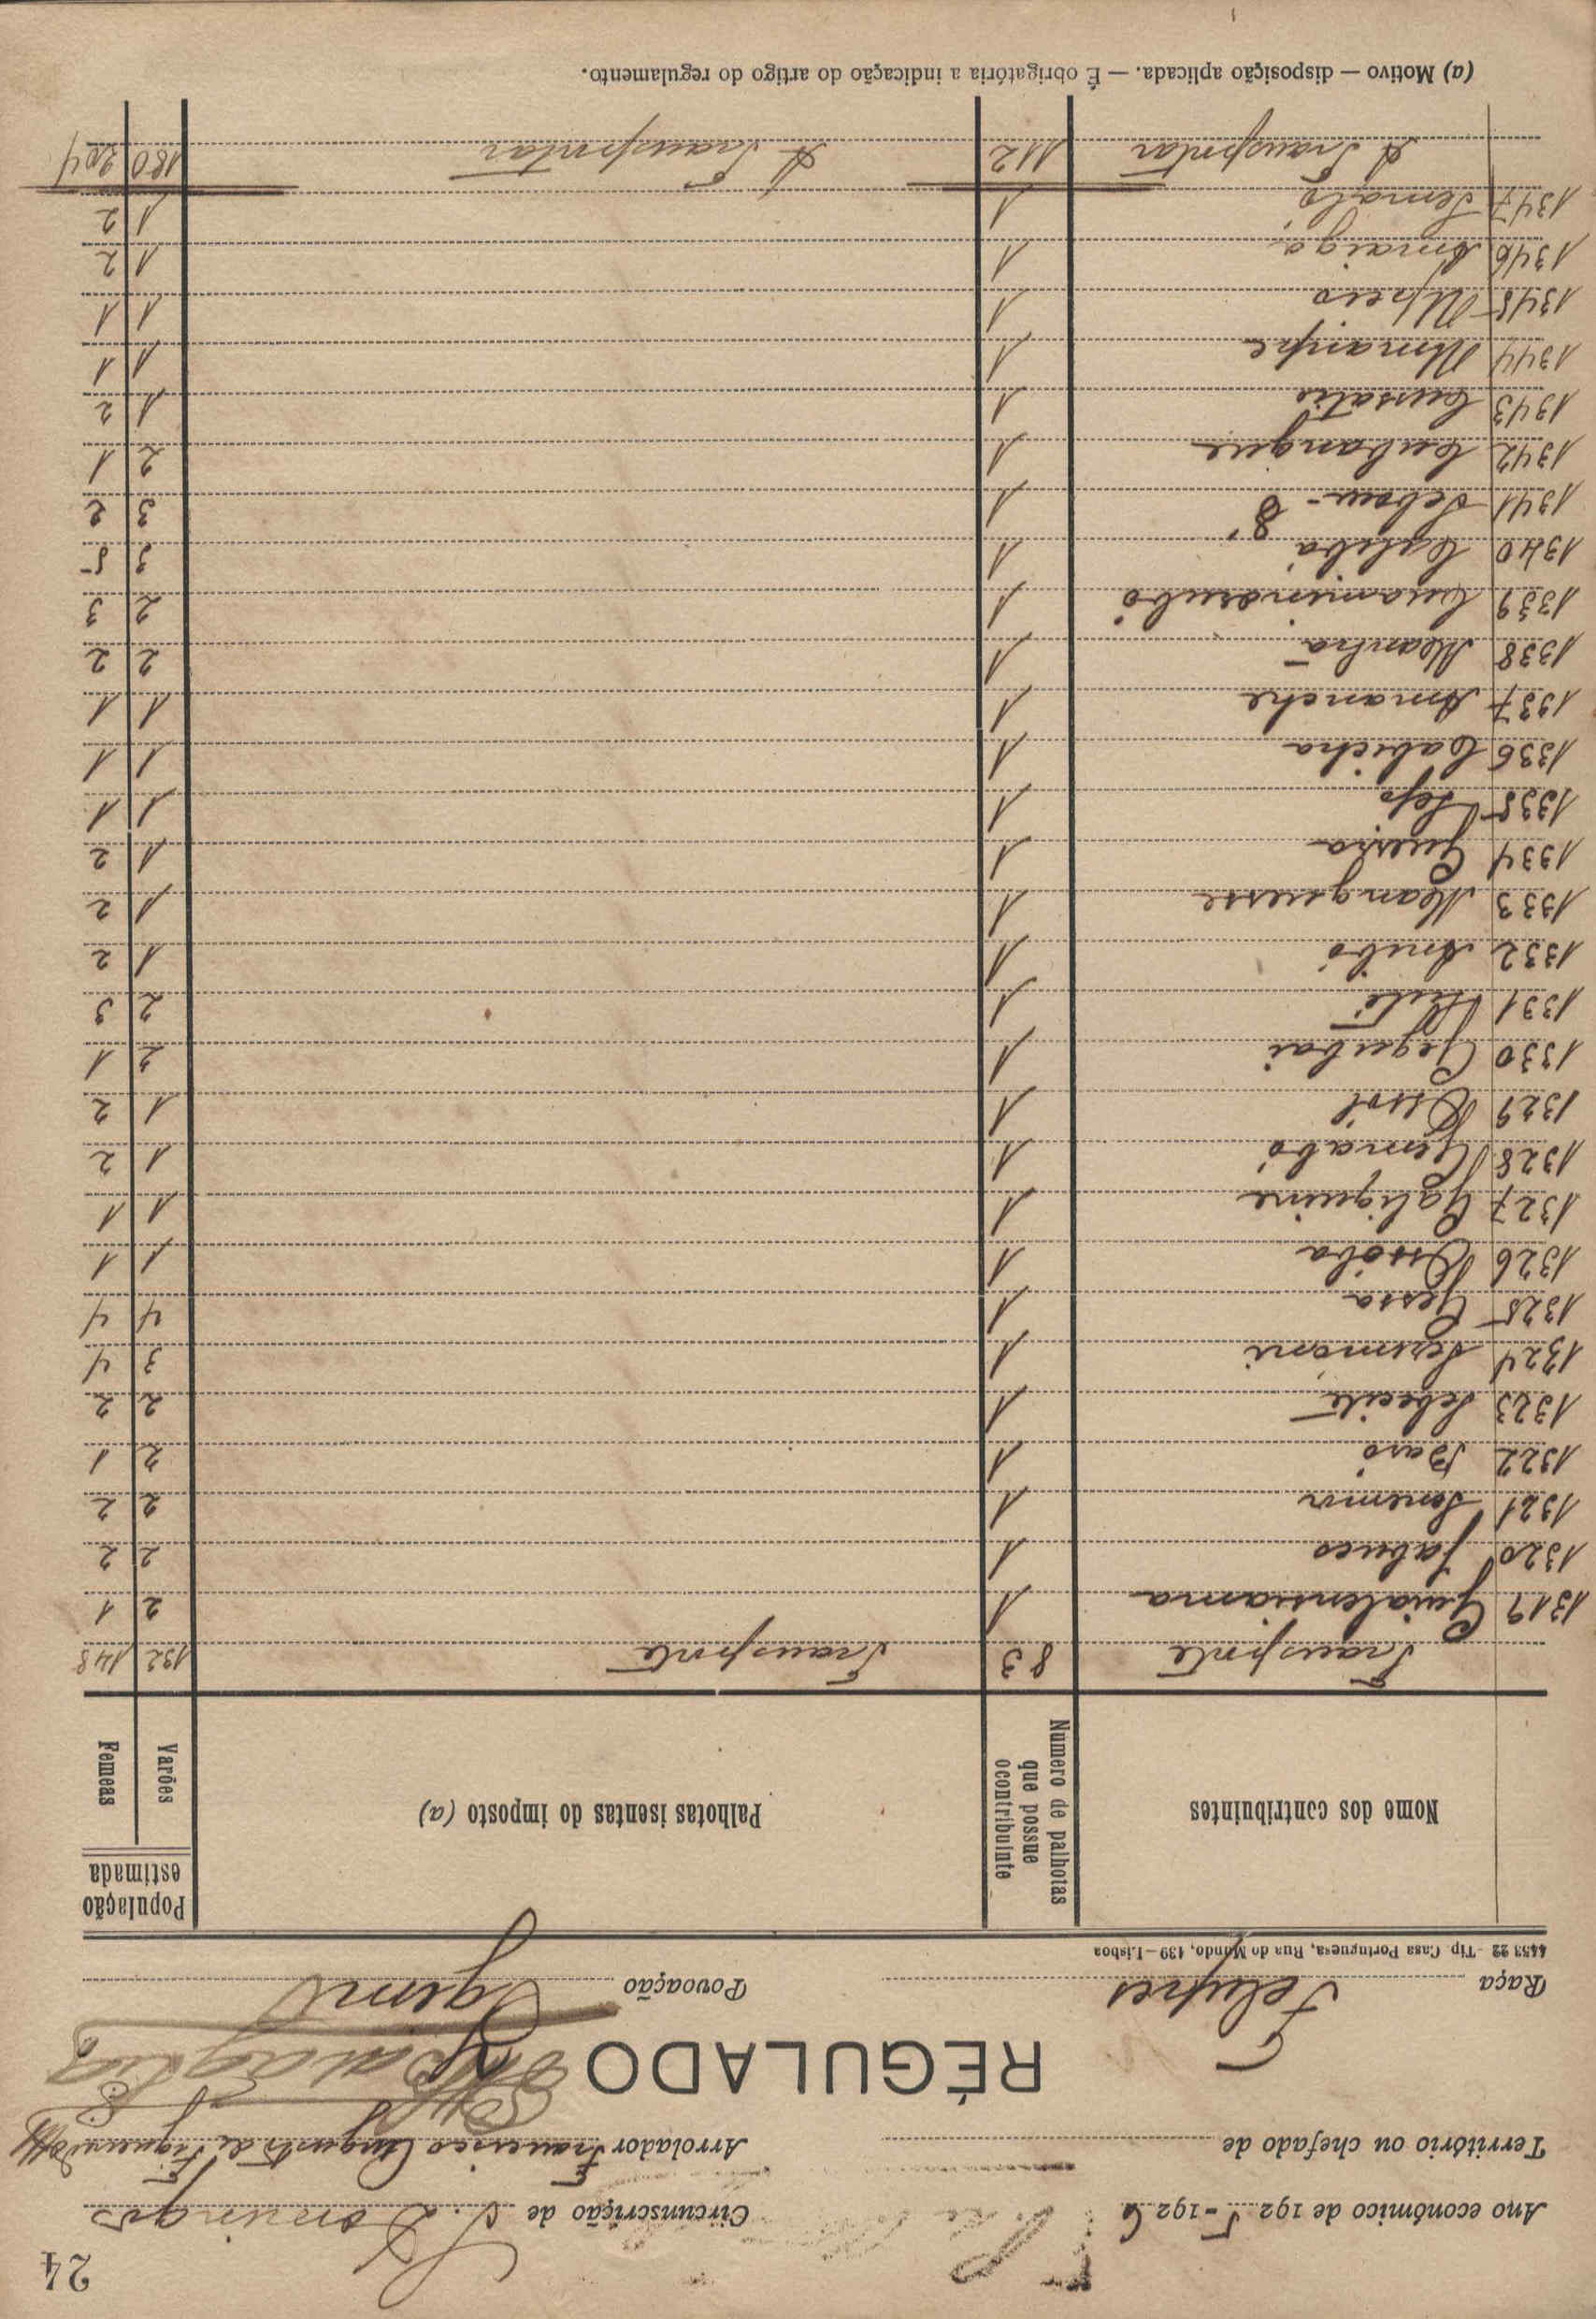 24
Ano económico de 1925-1926 Circunscrição de S. Domingos
Território ou chefado de Arrolador Francisco Augusto de Figueiredo
RÉGULADO
Raça Felupes Povoação Egine
4453 22 - Tip. Casa Portuguesa, Rua do Mundo, 139-Lisboa
Nome dos contribuintes Numero de palhotas que possue o contribuinte Palhotas isentas do imposto (a) População estimada Varões Femeas
Transporte 83 Transporte 132 148
1319 Guialensiama 1 2 1
1320 Jabuco 1 2 2
1321 Senemor 1 2 2
1322 Basó 1 2 1
1323 Sebecite 1 2 2
1324 Seremone 1 3 4
1325 Gessa 1 4 4
1326 Ossóba 1 1 1
1327 Galiquine 1 1 1
1328 Gemabó 1 1 2
1329 Ossól 1 1 2
1330 Gegubai 1 2 1
1331 1 2 3
1332 Anibó 1 1 2
1333 Manguesse 1 1 2
1334 Gueira 1 1 2
1335 Sejo 1 1 1
1336 Cabicha 1 1 1
1337 Amanche 1 1 1
1338 Manhã 1 2 2
1339 Cuaminorubó 1 2 3
1340 Egliba 1 3 5
1341 1 3 2
1342 Cubangue 1 2 1
1343 Cussatio 1 1 2
1344 Umanhe 1 1 1
1345 Upeio 1 1 1
1346 Emaigá 1 1 2
1347 Semaló 1 1 2
A Transportar 112 A Transportar 180 204
(a) Motivo — disposição aplicada. — É obrigatória a indicação do artigo do regulamento.